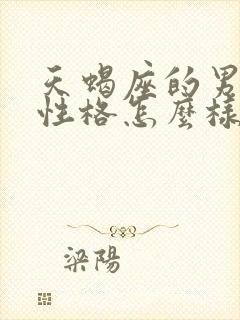 天蝎座的男
性格怎麼樣
梁陽